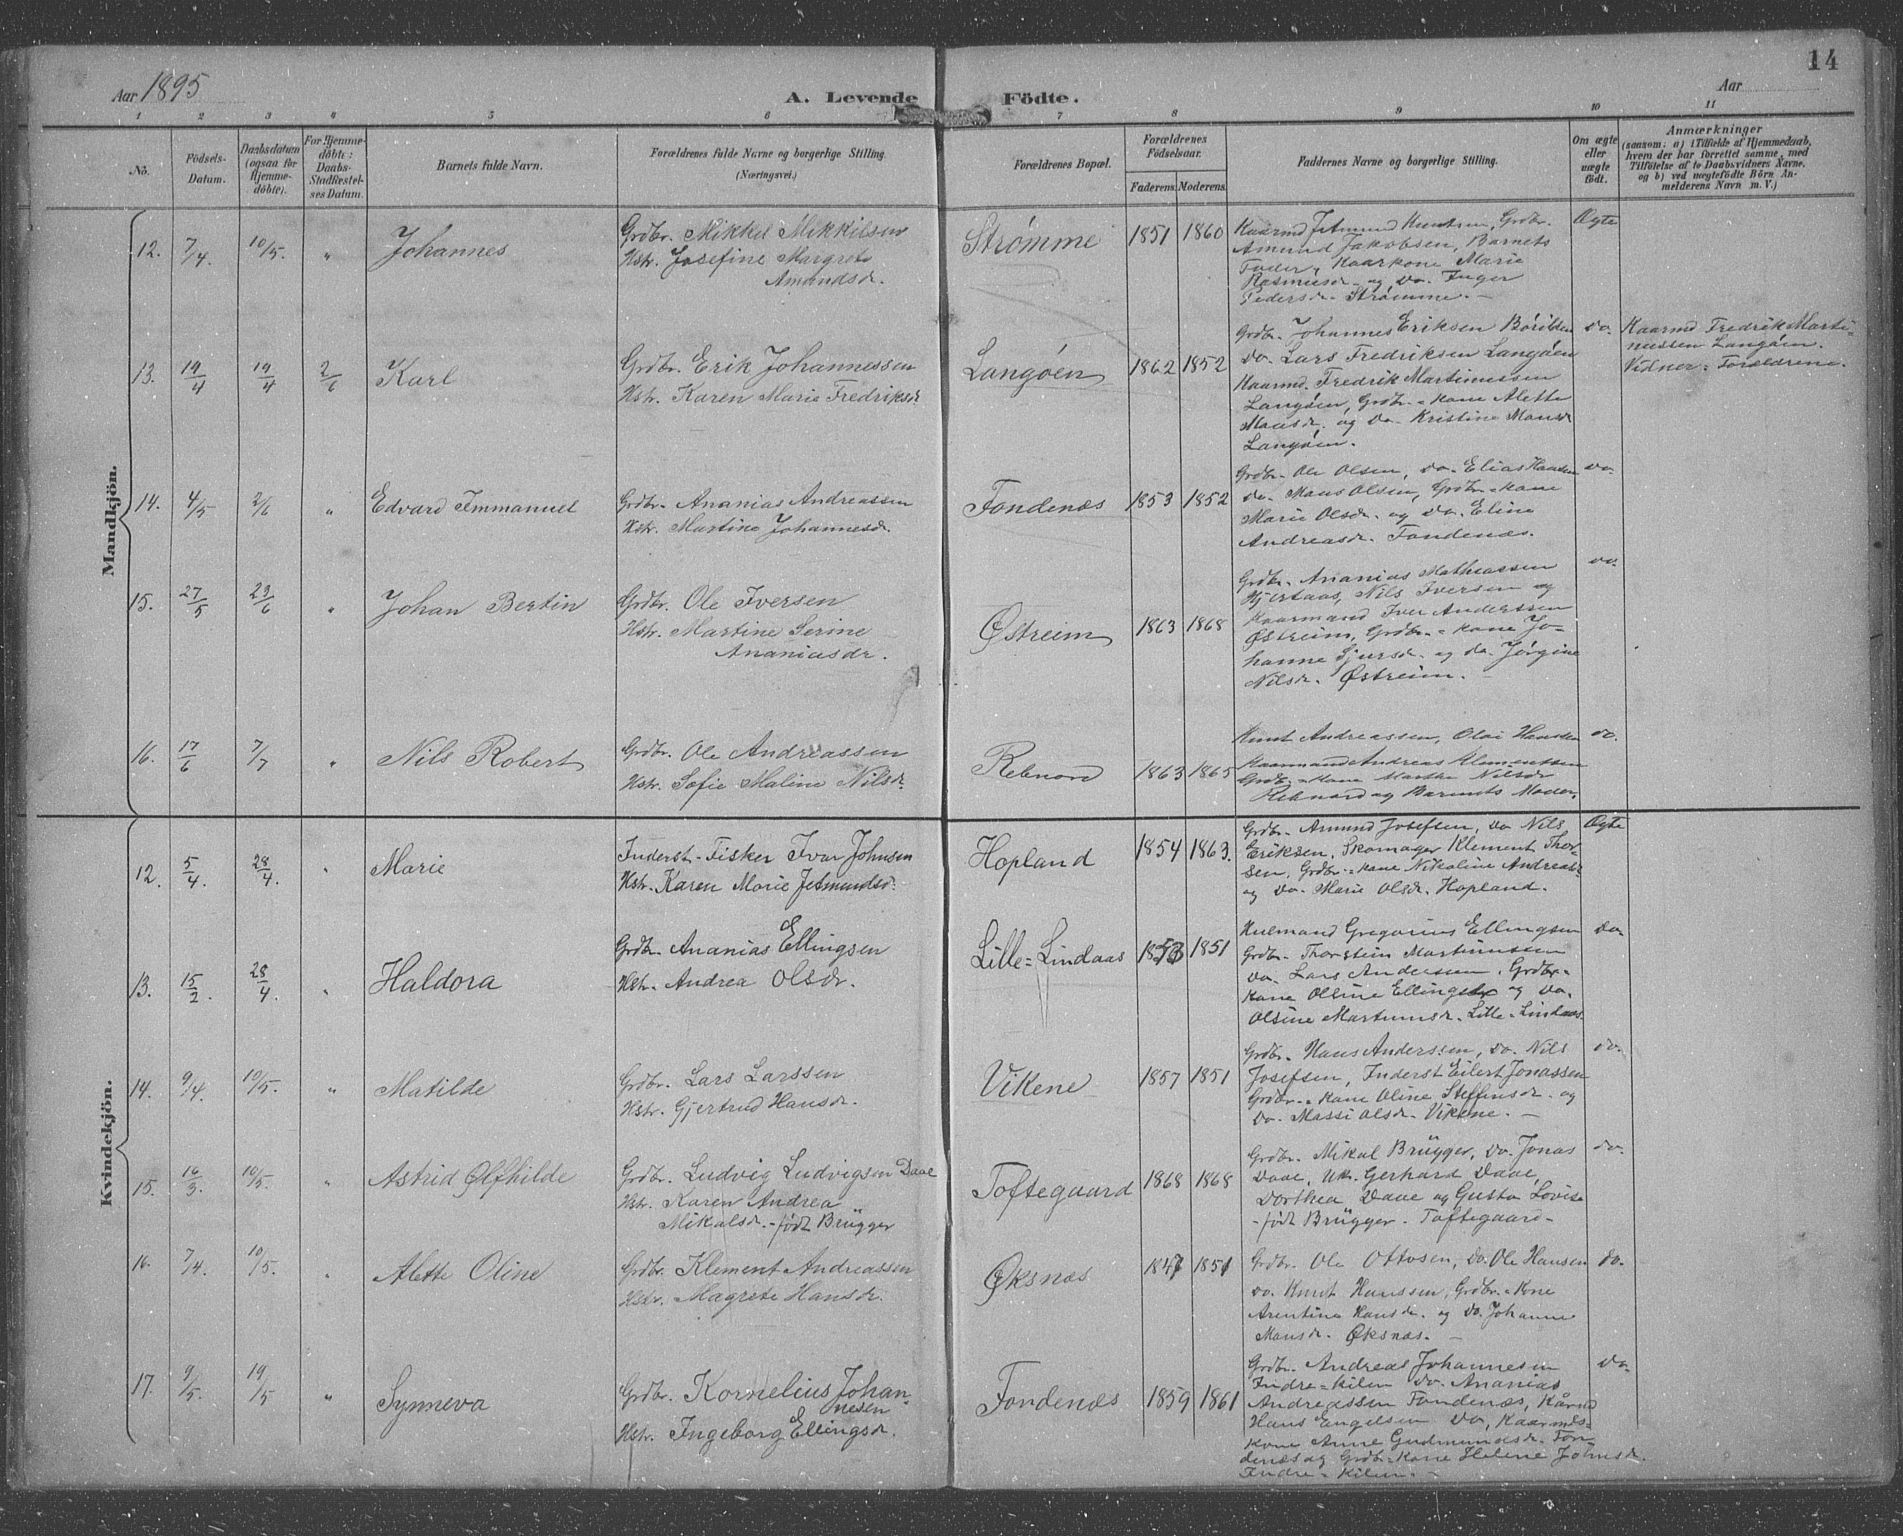 14
Aar 1895
A. Levende Födte.
Aar
1 2 3 4 5 6 7 8 9 10 11
No.
Födsels-Datum.
Daabsdatum (ogsaa for Hjemme-döbte).
For Hjemme-döbte: Daabs-Stadfæstel-ses Datum.
Barnets fulde Navn.
Forældrenes fulde Navne og borgerlige Stilling.
(Næringsvei.)
Forældrenes Bopæl.
Forældrenes Födselsaar.
Faderens. Moderens.
Faddernes Navne og borgerlige Stilling.
Om ægte eller uægte födt.
Anmærkninger
(saasom: a) i Tilfælde af Hjemmedaab,
hvem der har forrettet samme, med
Tilföielse af to Daabsvidners Navne,
og b) ved uægtefödte Börn An-
melderens Navn m. V.)
Mandkjön.
12. 7/4. 10/5. " Johannes
Grdbr. Mikkel Mikkelsen
Hstr. Josefine Margrete
Amundsdr.
Strømme 1851 1860
Kaarmd Jetmund Knutsen, Grdbr.
Amund Jakobsen, Barnets
Fader, Kaarkone Marie
Rasmusdr. og do. Inger
Pedersdr. Strømme. -
Ægte
13. 19/4 19/4 2/6 Karl
Grdbr. Erik Johannessen
Hstr. Karen Marie Fredriksdr.
Langøen 1862 1852
Grdbr. Johannes Eriksen Børilden
do. Lars Fredriksen Langøen
Kaarmd. Fredrik Martinussen
Langøen, Grdbr.-kone Alette
Monsdr. og do. Kristine Monsdr
Langøen.
do.
Kaarmd Fredrik Marti-
nussen Langøen.
Vidner: Forældrene.
14. 4/5 2/6 " Edvard Immanuel
Grdbr. Ananias Andreassen
Hstr. Martine Johannesdr.
Fondenæs 1853 1852
Grdbr. Ole Olsen, do. Elias Hansen
do. Mons Olsen, Grdbr.-kone
Marie Olsdr. og do. Eline
Andreasdr. Fondenæs.
do.
15. 27/5 23/6 " Johan Bertin
Grdbr. Ole Iversen
Hstr. Martine Serine
Ananiasdr.
Østreim 1863 1868
Grdbr. Ananias Mathiassen
Hjertaas, Nils Iversen og
Kaarmand Iver Anderssen
Østreim, Grdbr.-kone Jo-
hanne Sjursdr. og do. Jørgine
Nilsdr. Østreim. -
do.
16. 17/6 7/7 " Nils Robert
Grdbr. Ole Andreassen
Hstr. Sofie Maline Nilsdr.
Rebnord 1863 1865
Knut Andreassen, Olai Hansen
Kaarmand Andreas Klementsen
Grdbr.-kone Marthe Nilsdr
Rebnord og Barnets Moder.
do.
Kvindekjön.
12. 5/4. 28/4. " Marie
Inderst-Fisker Ivar Johnsen
Hstr. Karen Marie Jetmundsdr.
Hopland 1854 1863.
Grdbr. Amund Josefsen, do Nils
Eriksen, Skomager Klement Thor-
sen, Grdbr.-kone Nikoline Andreasdr
og do. Marie Olsdr. Hopland.
Ægte
13. 15/2. 28/4. " Haldora
Grdbr. Ananias Ellingsen
Hstr. Andrea Olsdr.
Lille-Lindaas 1853 1851
Grdbr. Thorstein Martinussen
do. Lars Anderssen, Grdbr.-
kone Olline Ellingsdr og do.
Olsine Martinusdr. Lille-Lindaas.
do.
14. 9/4. 10/5. " Matilde
Grdbr. Lars Larssen
Hstr. Gjertrud Hansdr.
Vikene 1857 1851
Grdbr. Hans Anderssen, do. Nils
Josefsen, Inderst Eilert Jonassen
Grdbr.-kone Oline Steffensdr. og
do. Massi Olsdr. Vikene. -
do.
15. 16/3. 10/5. " Astrid Ølfhilde
Grdbr. Ludvig Ludvigsen Daae
Hstr. Karen Andrea
Mikalsdr. - født Brügger
Toftegaard 1868 1868
Grdbr. Mikal Brügger, do. Jonas
Daae, Uk. Gerhard Daae,
Dorthea Daae og Gusta Lovise
- født Brügger. Toftegaard -
do.
16. 7/4. 10/5. " Alette Oline
Grdbr. Klement Andreassen
Hstr. Magrete Hansdr.
Øksnæs 1847 1851
Grdbr. Ole Ottosen, do. Ole Hansen
do. Knut Hanssen, Grdbr.-kone
Arentina Hansdr. og do. Johanne
Monsdr. Øksnæs. -
do.
17. 9/5. 19/5 " Synneva
Grdbr. Kornelius Johan-
nesen
Hstr. Ingeborg Ellingsdr.
Fondenæs 1859 1861
Grdbr. Andreas Johannesen
Indre-Kilen do. Ananias
Andreassen Fondenæs, Kårmd
Hans Engelsen do, Kaarmds-
kone Anne Gudmundsdr. Fon-
denæs og Grdbr.-kone Helene Johnsdr.
Indre-Kilen. -
do.